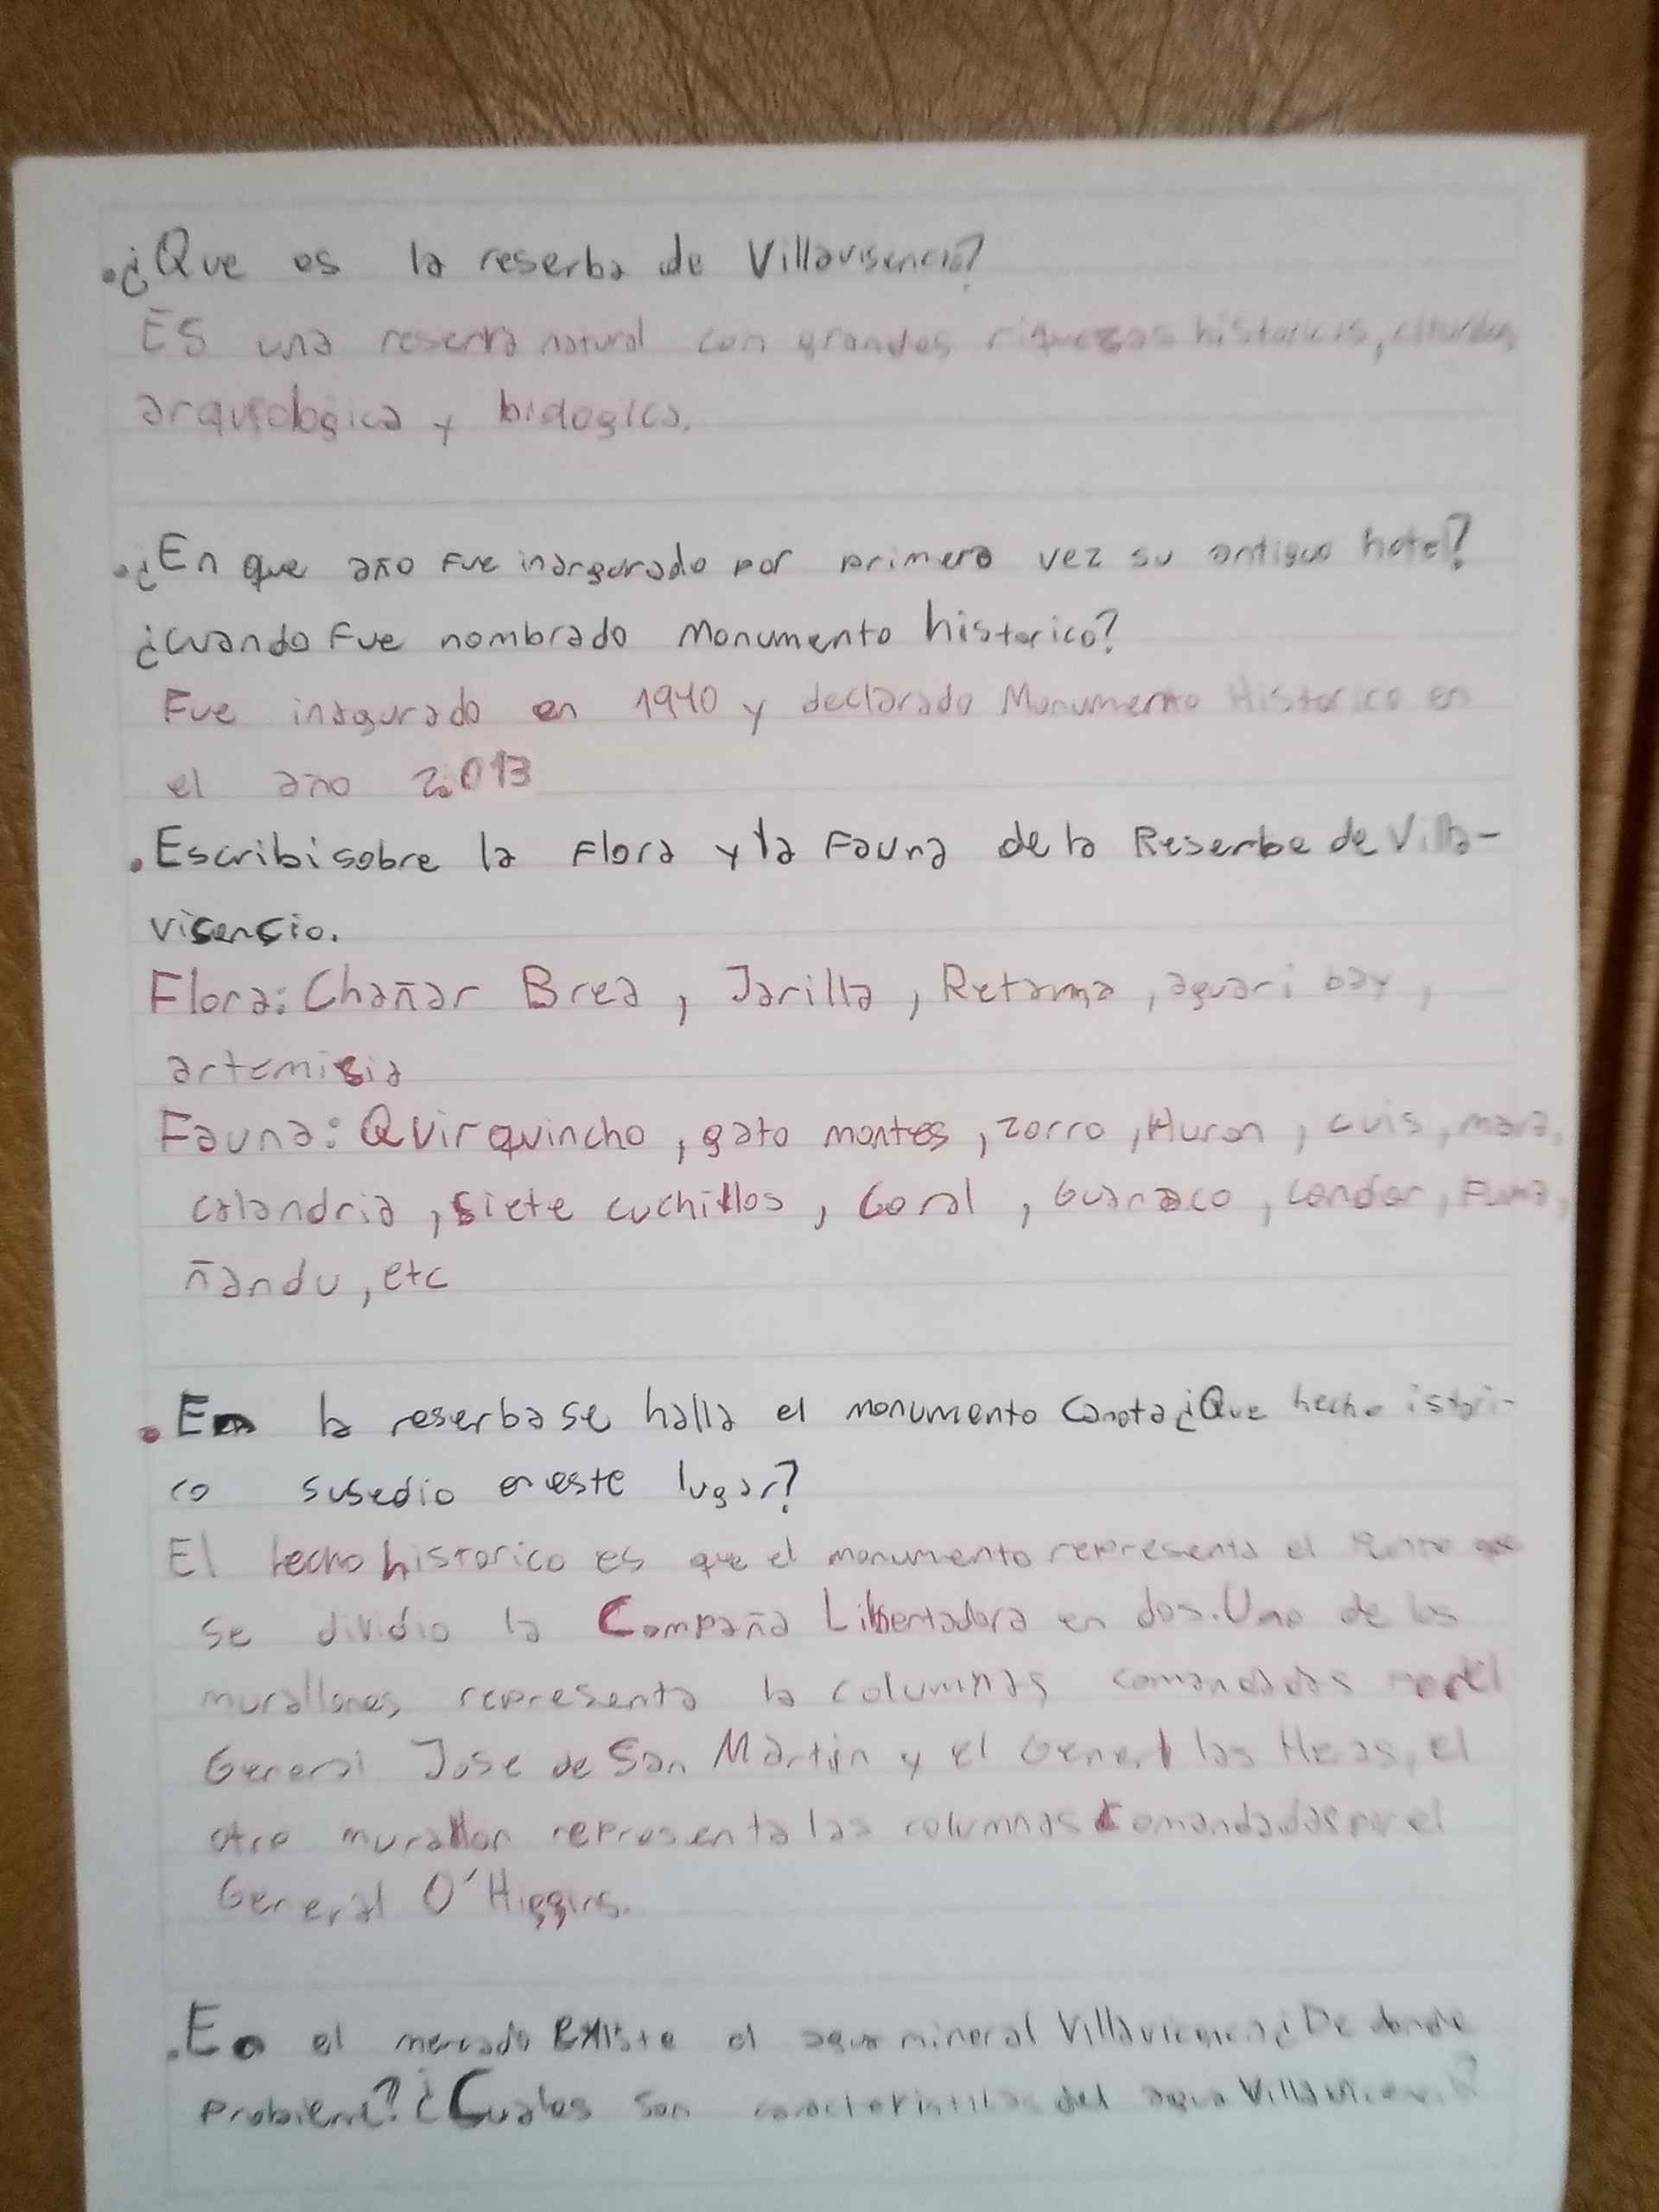 .¿Que es la reserba de Villavisencio?
ES una reserva natural con grandes riquezas historicas, culturales,
arqueologica y biologica.
.¿En que año Fue inargurado por primera vez su antiguo hotel?
¿Cuando Fue nombrado Monumento historico?
Fue inagurado en 1940 y declarado Monumento Historico en
el año 2.013
.Escribi sobre la Flora y la Fauna de la Reserbe de Villa-
vicencio.
Flora: Chañar Brea, Jarilla, Retama, aguari bay,
artemisia
Fauna: Quirquincho, gato montes, zorro, Huron, cuis, mara,
calandria, siete cuchillos, Coral, Guanaco, Condor, Puma,
ñandu, etc
.En la reserba se halla el monumento Canota ¿Que hecho istori-
co susedio en este lugar?
El hecho historico es que el monumento representa el Punto que
se dividio la Compaña Libertadora en dos. Uno de los
murallones representa la columnas comandadas por el
General Jose de San Martin y el General las Heras, el
otro murallon representa las columnas comandadas por el
General O'Higgins.
.En el mercado Existe el agua mineral Villavicencio ¿De donde
Probiene? ¿Cuales son caracteristicas del agua Villavicencio?